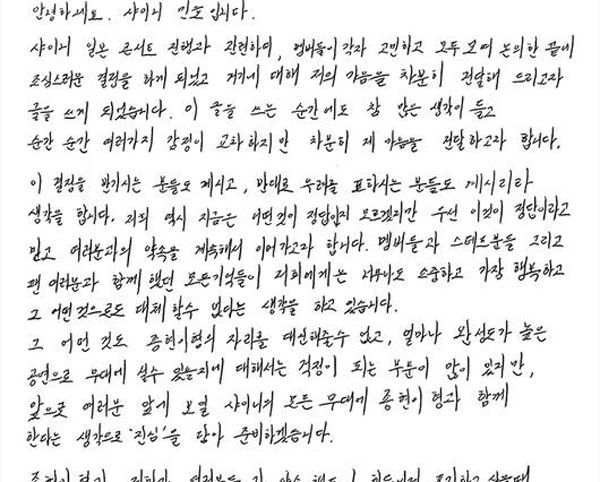 안녕하세요. 샤이니 민호입니다.
샤이니 일본 콘서트 진행과 관련하여, 멤버들이 각자 고민하고 모두 모여 논의한 끝에
조심스러운 결정을 하게 되었고 거기에 대해 저의 마음을 차분히 전달해 드리고자
글을 쓰게 되었습니다. 이 글을 쓰는 순간에도 참 많은 생각이 들고
순간 순간 여러가지 감정이 교차하지만 차분히 제 마음을 전달하고자 합니다.
이 결정을 반기시는 분들도 계시고, 반대로 우려를 표하시는 분들도 계시리라
생각을 합니다. 저희 역시 지금은 어떤것이 정답인지 모르겠지만 우선 이것이 정답이라고
믿고 여러분과의 약속을 계속해서 이어가고자 합니다. 멤버들과 스태프분들 그리고
팬 여러분과 함께 했던 모든기억들이 저희에게는 너무나도 소중하고 가장 행복하고
그 어떤것으로도 대체할수 없다는 생각을 하고 있습니다.
그 어떤 것도 종현이형의 자리를 대신해줄수 없고, 얼마나 완성도가 높은
공연으로 무대에 설수 있을지에 대해서는 걱정이 되는 부분이 많이 있지만,
앞으로 여러분 앞에 보일 샤이니의 모든 무대에 종현이 형과 함께
한다는 생각으로 '진심'을 담아 준비하겠습니다.